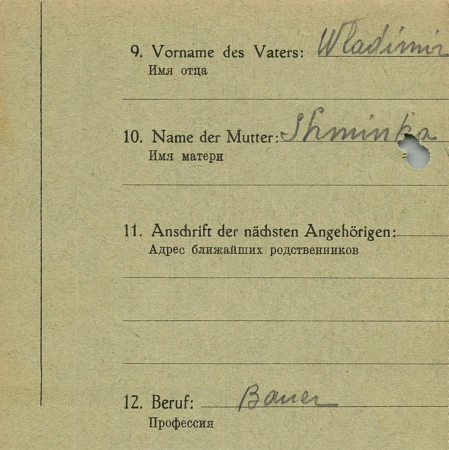 9. Vorname des Vaters: Wladimir
Имя отца
10. Name der Mutter: Shminka
Имя матери
11. Anschrift der nächsten Angehörigen:
Адрес ближайших родственников
12. Beruf: Bauer
Профессия